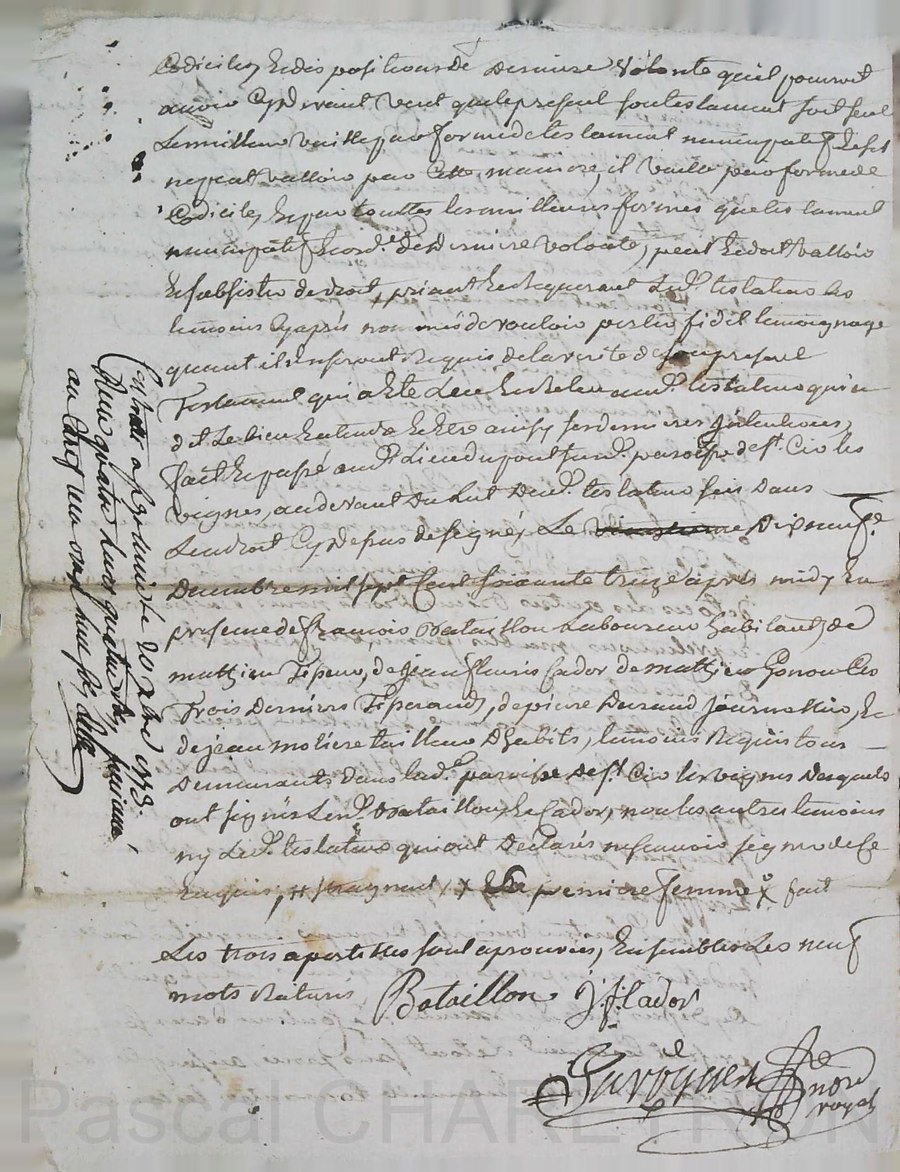 Codiciles, et dispositions de derniere volonté quil pourroit
avoir cy devant veut que le present son testament soit seul
Le meilleur vaille par forme de testament nuncupatif, et sil
ne peut valloir par cette maniere, il vaille par forme de
Codicile, et par touttes les meilleures formes que testament
nuncupatif et ord.e de derniere volonté, peut et doit valloir
et subsister de droit, priant et requerant led.t testateur les
temoins cy après nommés de vouloir porter fidel temoignage
quant ils en seront requis de la verité de son present
Testament qui a eté Leu, et releu aud.t testateur qui a
dit Le bien entendre et etre ainsy ses dernieres intentions,
fait et passé aud.t Lieu du pont sud.t paroisse de s.t Cir les
vignes, au devant du Lit dud.t testateur sis dans
Lendroit cy dessus designé, Le Dix neuf.e
Decembre mil sept cent soixante treize après midy en
presence de francois Bataillon Laboureur habitant, de
matthieu Tiperau, de jean fleuris Cador de matthieu
Trois derniers Tiperands, de pierre Durand journallier, et
de jean moliere tailleur d'habits, temoins requis tous
Demeurants dans lad.e paroisse de s.t Cir les vignes desquels
ont signés Led.t Bataillon, et Cador, non les autres temoins
ny Led.t testateur qui ont declarés ne scavoir signer de ce
enquis, premiere femme fait
Les trois apostilles sont aprouvées, Ensembles Les neuf
mots Raturés Bataillon j. f. Cador
nore
royal
Controllé a le 20 xbre 1773.
Reçu quatre livres quatorze sols,
au
Pascal CHAREYRON